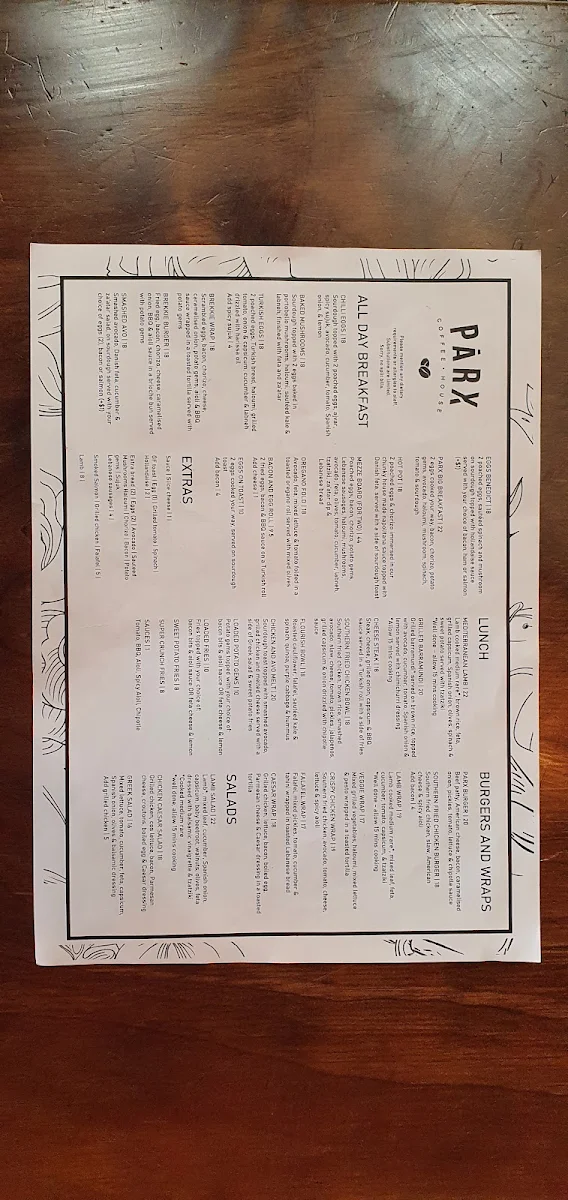 PARX
COFFEE • HOUSE
Please mention any dietary
ALL DAY BREAKFAST
CHILLI EGGS | 18
Sourdough topped with 2 poached eggs, ajvar,
spicy sujuk, avocado, cucumber, tomato, Spanish
onion & lemon
BAKED MUSHROOMS | 18
Sourdough topped with 2 eggs baked in
portobello mushrooms, haloumi, sautéed kale &
labneh, finished with feta and zaatar
TURKISH EGGS | 18
2 poached eggs, Turkish bread, haloumi, grilled
tomato, onion & capsicum, cucumber & labneh
drizzled with harissa oil
Add spicy sujuk | 4
BREKKIE WRAP | 18
Scrambled eggs, bacon, chorizo, cheese,
caramelised onion, potato gems, aioli & BBQ
sauce wrapped in a toasted tortilla served with
potato gems
BREKKIE BURGER | 18
Fried egg, bacon, chorizo, cheese, caramelised
onion, BBQ & aioli sauce in a brioche bun served
with potato gems
SMASHED AVO | 18
Smashed avocado, Danish feta, cucumber &
zaatar salad on sourdough served with your
choice of eggs (2), bacon or salmon (+$1)
EGGS BENEDICT | 18
2 poached eggs, sautéed spinach and mushroom
on sourdough topped with hollandaise sauce
served with your choice of bacon, ham or salmon
(+$1)
PARX BIG BREAKFAST | 22
2 eggs cooked your way, bacon, chorizo, potato
gems, avocado, haloumi, mushroom, spinach,
tomato & sourdough
HOT POT | 18
2 poached eggs & chorizo immersed in our
chunky house made napolitana sauce topped with
Danish feta, served with a side of sourdough toast
MEZZE BOARD (FOR TWO) | 44
Poached eggs, bacon, chorizo, potato gems,
Lebanese sausages, haloumi, mushrooms,
avocado, feta, olives, tomato, cucumber, labneh,
tzatziki, zaatar dip &
Lebanese bread
OREGANO FOLD | 18
Avocado, feta, mixed lettuce & tomato folded in a
toasted oregano roll served with mixed olives
BACON AND EGG ROLL | 9.5
2 fried eggs, bacon & BBQ sauce on a Turkish roll
Add cheese | 1
EGGS ON TOAST | 10
2 eggs cooked your way, served on sourdough
toast
Add bacon | 4
EXTRAS
Sauce | Slice cheese | 1
GF toast | Egg (1) | Grilled tomato | Spinach
Hollandaise | 2
Extra bread (2) | Eggs (2) | Avocado | Sauteed
Mushrooms | Haloumi | Chorizo | Bacon | Potato
gems | Sujuk
Lebanese sausages | 4
Smoked Salmon | Grilled Chicken | Falafel | 5
Lamb | 8
LUNCH
MEDITERRANEAN LAMB | 22
Lamb cooked medium rare*, brown rice, feta,
grilled capsicum, Spanish onion, olives, spinach &
sweet potato served with tzatziki
*Well done - allow 15 mins cooking
GRILLED BARRAMUNDI | 20
Grilled barramundi* served on brown rice, topped
with avocado, cucumber, tomato, Spanish onion &
lemon served with chimichurri dressing
*Allow 15 mins cooking
CHEESE STEAK | 18
Steak, cheese, grilled onion, capsicum & BBQ
sauce served in a Turkish roll with a side of fries
SOUTHERN FRIED CHICKEN BOWL | 18
Southern fried chicken, brown rice, smashed
avocado, slaw, cheese, tomato, pickles, jalapenos,
grilled capsicum & onion drizzled with chipotle
sauce
FLOURISH BOWL | 18
Roasted cauliflower, falafel, sautéed kale &
spinach, quinoa, purple cabbage & hummus
CHICKEN AND AVO MELT | 18
Sourdough toast topped with smashed avocado,
grilled chicken and melted cheese served with a
side of Greek salad & sweet potato fries
LOADED POTATO GEMS | 10
Potato gems topped with your choice of:
bacon bits & aioli sauce OR feta cheese & lemon
LOADED FRIES | 10
Fries topped with your choice of:
bacon bits & aioli sauce OR feta cheese & lemon
SWEET POTATO FRIES | 8
SUPER CRUNCH FRIES | 8
SAUCES | 1
Tomato, BBQ, Aioli, Spicy Aioli, Chipotle
BURGERS AND WRAPS
PARX BURGER | 20
Beef patty, American cheese, bacon, caramelised
onion, pickles, tomato, lettuce & chipotle sauce
SOUTHERN FRIED CHICKEN BURGER | 18
Southern fried chicken, slaw, American
cheese & spicy aioli
Add bacon | 4
LAMB WRAP | 19
Lamb cooked medium rare*, mixed leaf, feta,
cucumber, tomato, capsicum, & tzatziki
*Well done - allow 15 mins cooking
VEGGIE WRAP | 17
Mixed grilled vegetables, haloumi, mixed lettuce
& pesto wrapped in a toasted tortilla
CRISPY CHICKEN WRAP | 19
Southern fried chicken, avocado, tomato, cheese,
lettuce & spicy aioli
FALAFEL WRAP | 17
Falafel, mixed pickles, tomato, cucumber &
tahini wrapped in toasted Lebanese bread
CAESAR WRAP | 18
Grilled chicken, lettuce, bacon, boiled egg,
Parmesan cheese & Caesar dressing in a toasted
tortilla
SALADS
LAMB SALAD | 22
Lamb*, mixed leaf, cucumber, Spanish onion,
heirloom baby beetroot, walnuts, olives, feta
dressed with balsamic vinaigrette & tzatziki
*Cooked medium rare
*well done, allow 15 mins cooking
CHICKEN CAESAR SALAD | 18
Grilled chicken, cos lettuce, bacon, Parmesan
cheese, croutons, boiled egg & Caesar dressing
GREEK SALAD | 16
Mixed lettuce, tomato, cucumber, feta, capsicum,
Spanish onion, olives & balsamic dressing
Add grilled chicken | 5